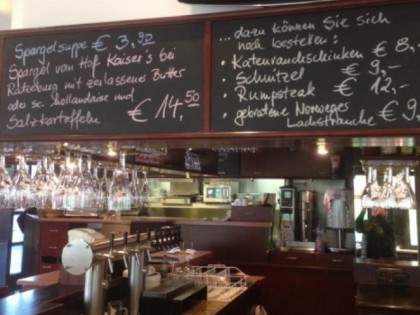 Spargelsuppe € 3,90
Spargel vom Hof Kaiser's bei
Ratzeburg mit zerlassener Butter
oder Sc. hollandaise und
Salzkartoffeln € 14,50
...dazu können Sie sich
noch bestellen:
• Katenrauchschinken € 8.
• Schnitzel € 9,-
• Rumpsteak € 12,-
gebratene Norweges
Lachstranche € 9